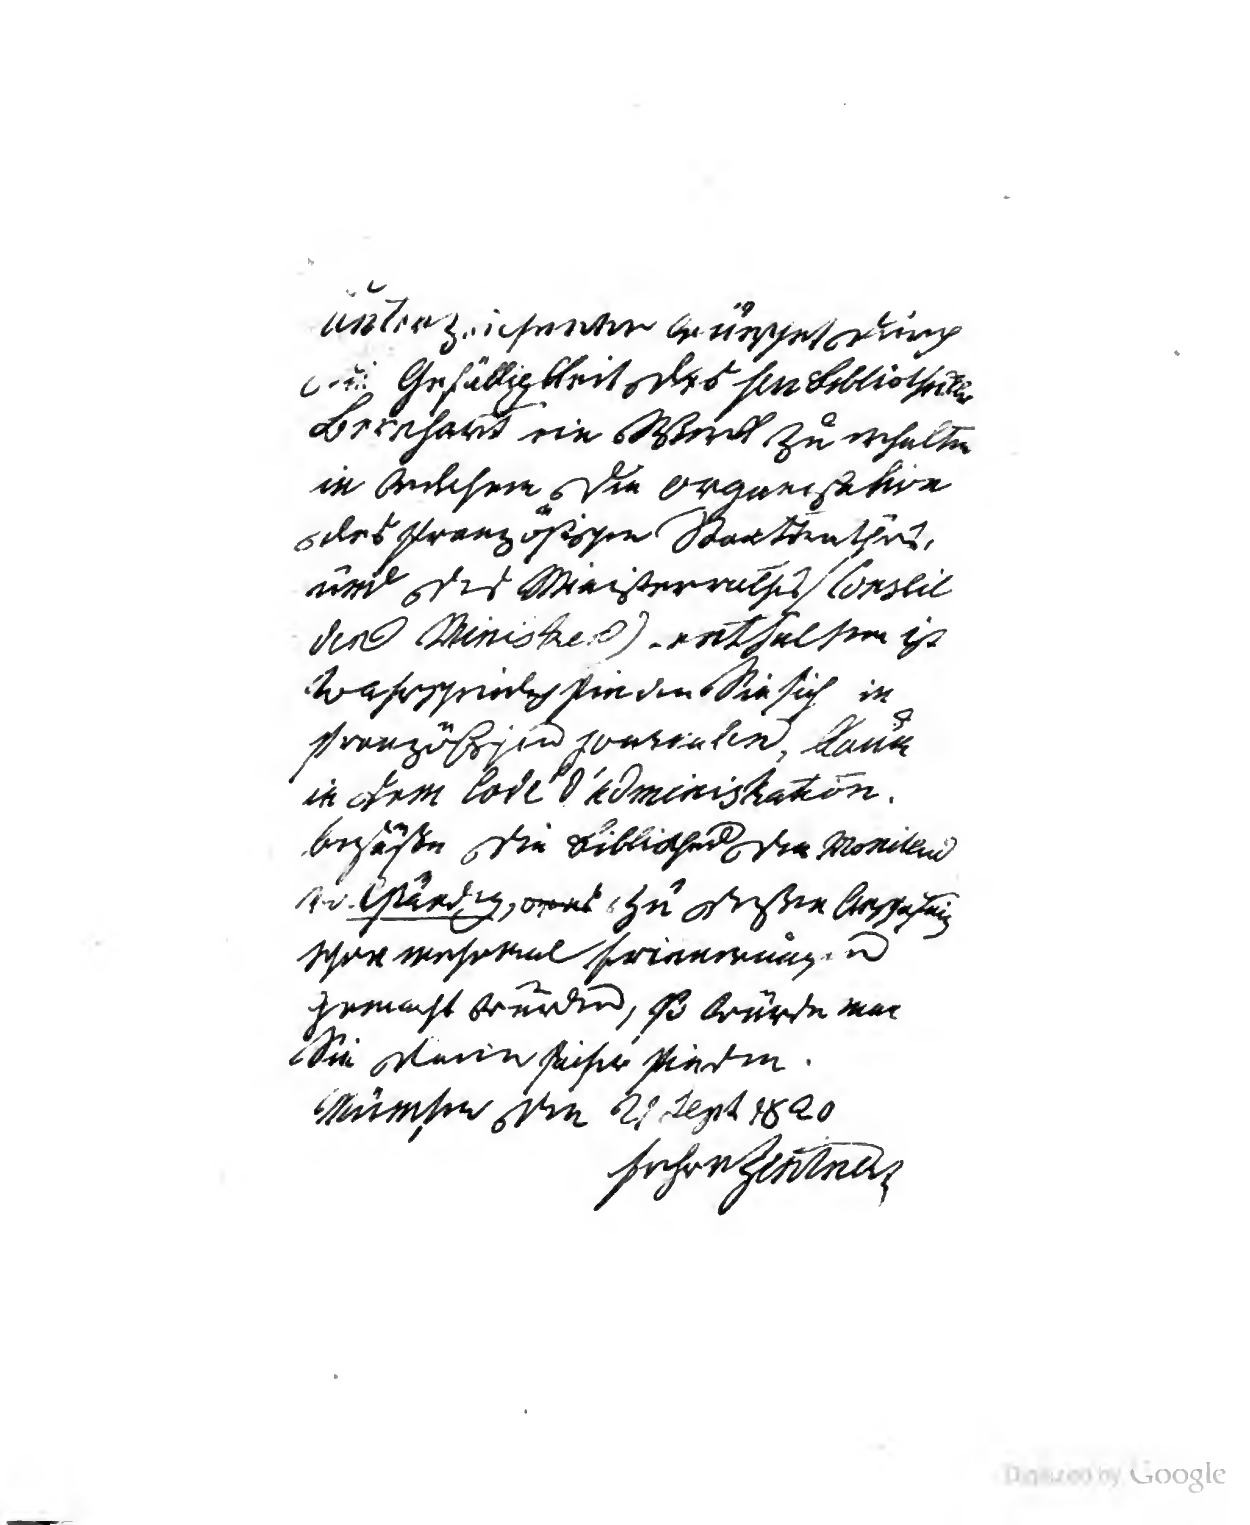 Unterzeichneter wünschet durch
die Gefälligkeit des Hrn Bibliothekar
Bernhart ein Werk zu erhalten
in welchem die Organisation
des französischen Staatsraths,
und des Ministerraths (Conseil
des Ministres) enthalten ist
Wahrscheinlich finden Sie sich in
französischen Journalen, kaum
in dem Code d'administration.
besäße die Bibliothek den Moniteur
vollständig, zu dessen
schon mehrmal Erinnerungen
gemacht wurden, so würde man
Sie darin sicher finden.
München den 21 Sept 1820
Frhr v Zentner
Digitized by Google